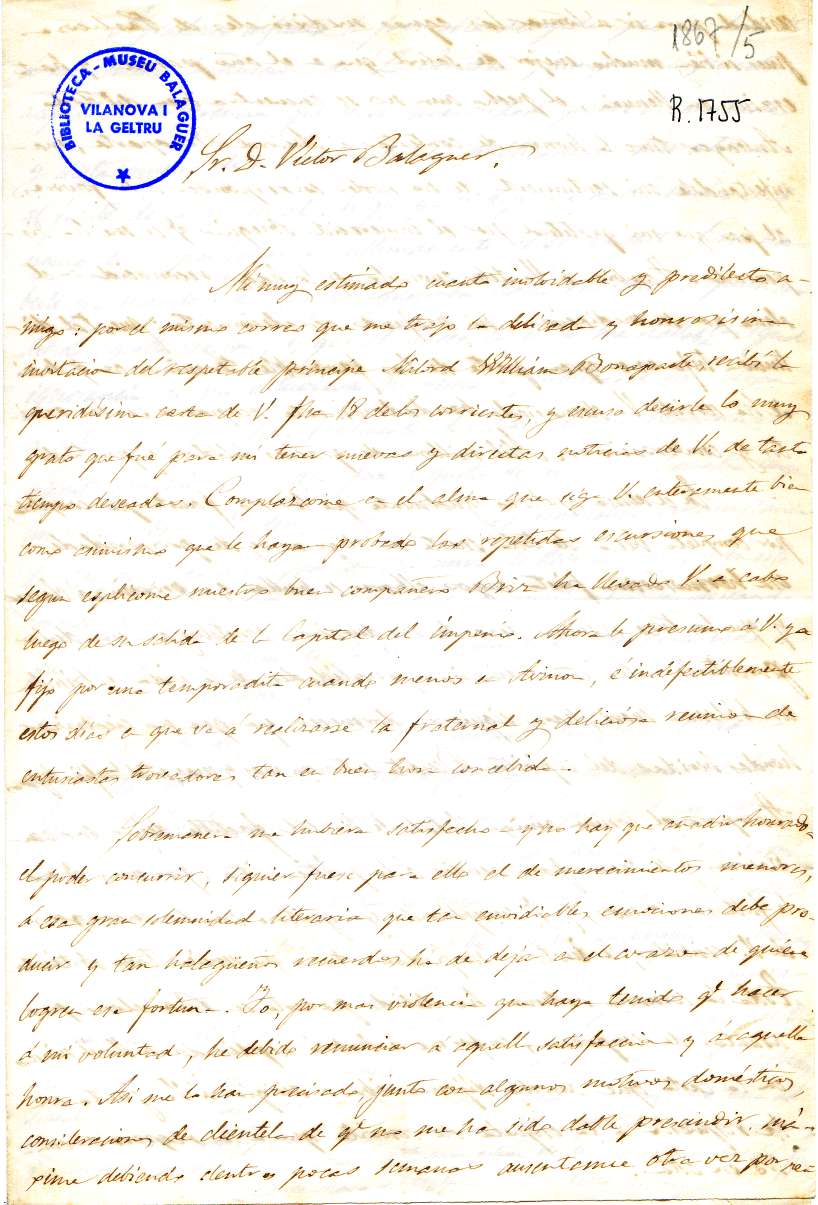 1867/5
R. 1755
BIBLIOTECA - MUSEU BALAGUER
VILANOVA I
LA GELTRU
Sr. D. Victor Balaguer.
Mi muy estimado cuanto inolvidable y predilecto a-
migo: por el mismo correo que me trajo la delicada y honrosísima
invitacion del respetable príncipe Milord William Bonaparte, recibí la
queridísima carta de V. fha 18 de los corrientes, y escuso decirle lo muy
grato que fué para mí tener nuevas y directas noticias de V. de tanto
tiempo deseadas. Complázcome en el alma que siga V. enteramente bien
como asimismo que le hayan probado las repetidas escursiones que
segun esplicóme nuestro buen compañero Briz ha llevado V. á cabo
luego de su salida de la Capital del imperio. Ahora le presumo á V. ya
fijo por una temporadita cuando menos en Avinon, é indefectiblemente
estos dias en que va á realizarse la fraternal y deliciosa reunion de
entusiastas trovadores tan en buen hora concebida.
Sobremanera me hubiera satisfecho - y no hay que añadir honrado -
el poder concurrir, siquier fuese para ello el de merecimientos menores,
á esa gran solemnidad literaria que tan envidiables emociones debe pro-
ducir y tan halagüeños recuerdos ha de dejar en el corazon de quienes
logren esa fortuna. Yo, por mas violencia que haya tenido qe hacer
á mi voluntad, he debido renunciar á aquella satisfaccion y á aquella
honra. Asi me lo han precisado, junto con algunos motivos domésticos,
consideraciones de clientela de qe no me ha sido dable prescindir, má-
xime debiendo dentro pocas semanas ausentarme otra vez por